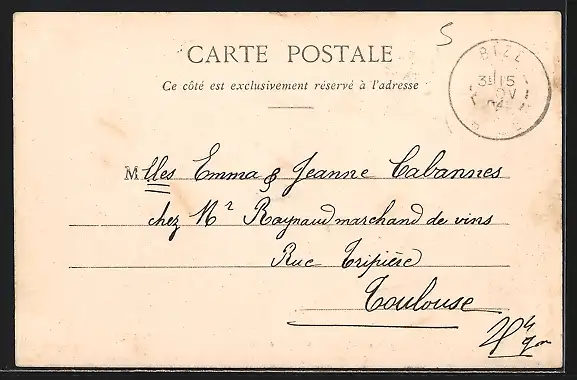 CARTE POSTALE
Ce côté est exclusivement réservé à l'adresse
BIZE
3E 15
NOV
04
Mlles Emma & Jeanne Cabannes
chez Mr Raynaud marchand de vins
Rue Tripière
Toulouse